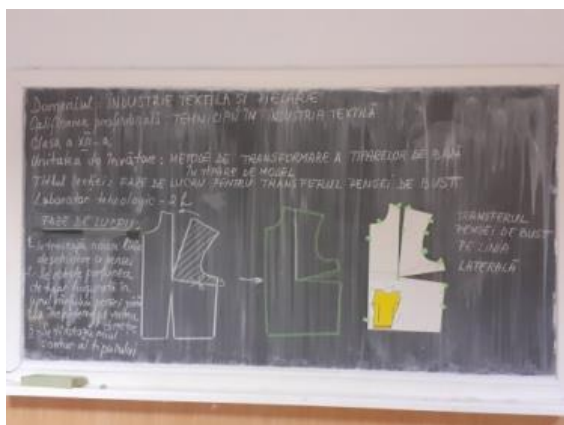 Domeniul: INDUSTRIE TEXTILĂ SI PIELĂRIE
Calificarea profesională: TEHNICIAN ÎN INDUSTRIA TEXTILĂ
Clasa a
Unitatea de învățare: METODE DE TRANSFORMARE A TIPARELOR DE BAZĂ
ÎN TIPARE DE MODEL
Titlul lecției: FAZE DE LUCRU PENTRU TRANSFERUL PENSEI DE BUST
Laborator tehnologic - 2
FAZE DE LUCRU
TRANSFERUL
PENSEI DE BUST
PE LINIA
LATERALĂ
noua linie
de a pensei
2. Se
de tipar în
jurul pensei
contur al tiparului